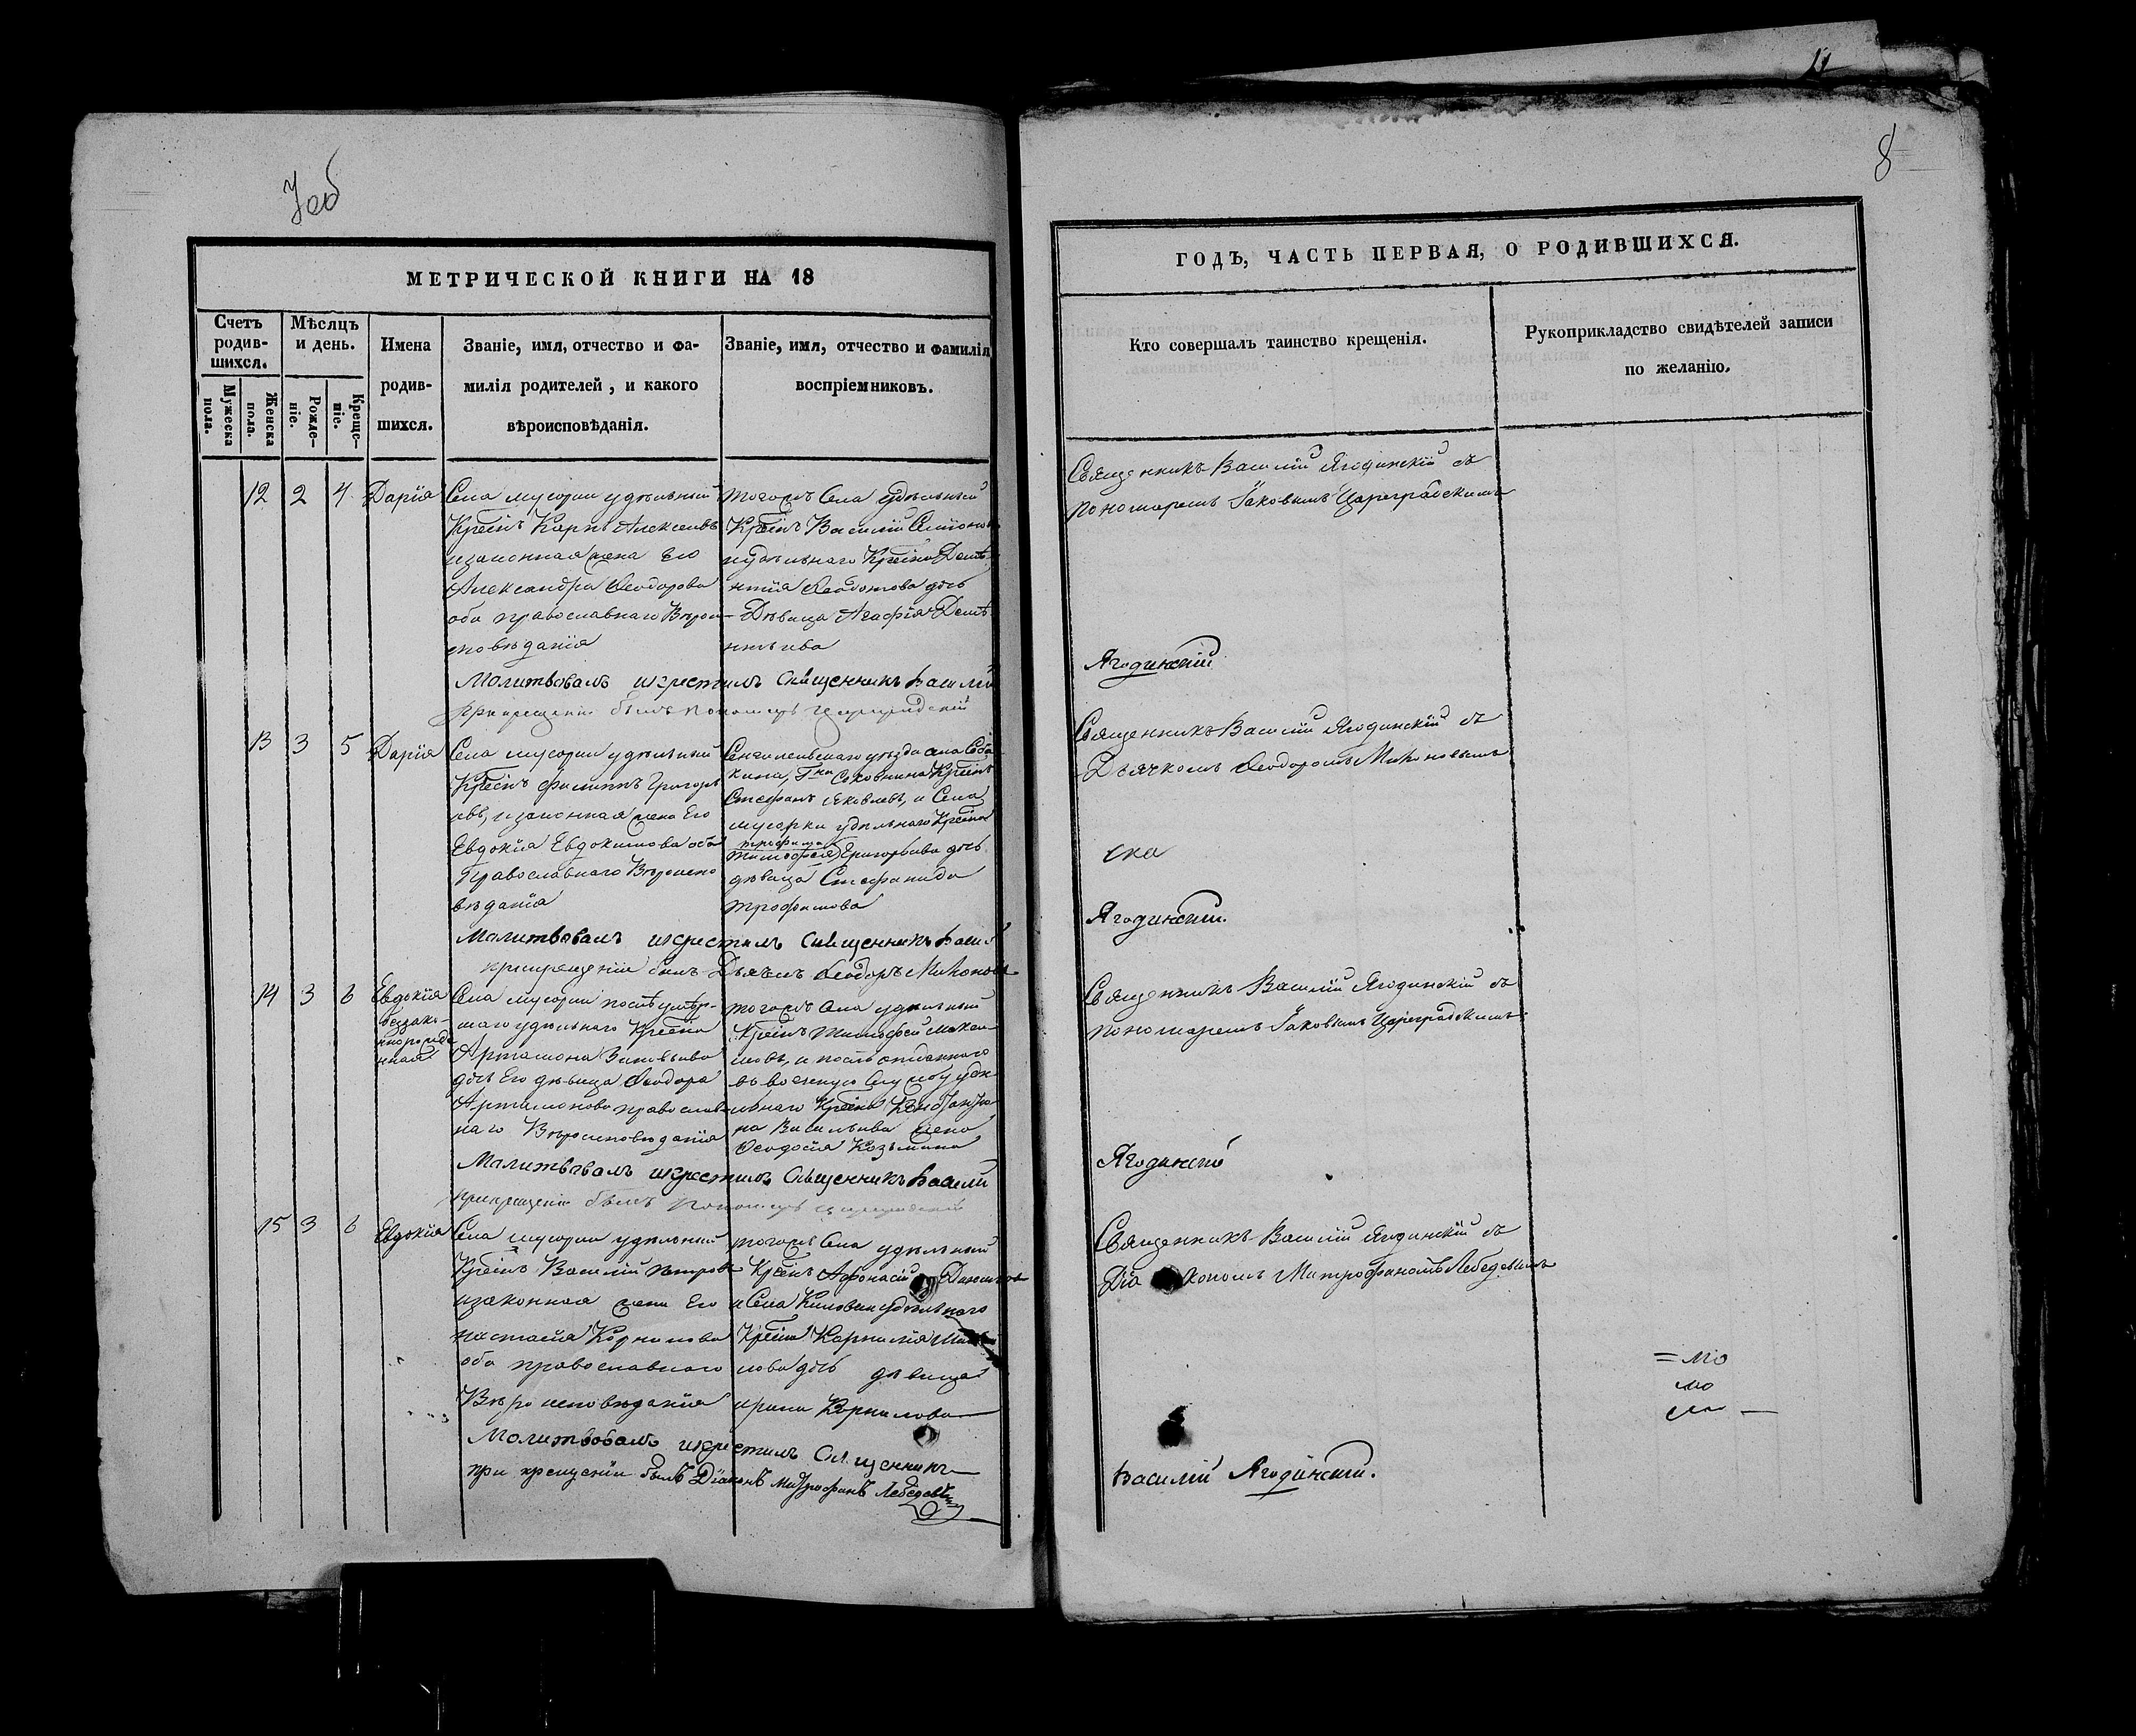 7об
МЕТРИЧЕСКОЙ КНИГИ НА 18
Счетъ родив-шихся.
Мужеска пола.
Женска пола.
Мѣсяцъ и день.
Рожде-ніе.
Креще-ніе.
Имена родив-шихся.
Званіе, имя, отчество и фа-
милія родителей, и какого
вѣроисповѣданія.
Званіе, имя, отчество и фамилія
воспріемниковъ.
12 2 4 Дарія
Села мусорки удѣльный
Крестинъ Карпъ Алексѣевъ
изаконная жена Его
Александра Ѳеодорова
оба православнаго Вѣрои-
споведанія
тогожъ Села удѣльный
Крестинъ Василій Семіоновъ
иудѣльнаго Крестина Деме
нтія Ѳеодотова дочь
Дѣвица Агафія Деме
нтьева
Молитвовалъ икрестилъ Священникъ Василій
при крещеніи былъ пономарь Цареградскій
13 3 5 Дарія
Села мусорки удѣльный
Крестинъ филиппъ Григорь
евъ, изаконная жена Его
Евдокія Евдокимова оба
Православнаго Вѣроиспо
веданія
Сенгилевскаго уѣзда села Соба
кина, Гна Соковнина Крестинъ
Стефанъ Яковлевъ, и Села
мусорки удѣльнаго Крестина
трофима
Григорьева дочь
дѣвица Стефанида
трофимова
Молитвовалъ икрестилъ Священникъ Васил
прикрещеніи былъ Дьячекъ Ѳеодоръ Миѳоновъ
14 3 6 Евдокія
беззако-
ннорожде
нная
Села мусорки послѣ умер-
шаго удѣльнаго Крестина
Артамона
дочь Его дѣвица Ѳеодора
Артамонова православ-
наго Вѣроисповеданія
тогожъ Села удѣльный
Крестинъ Тимофей Макси
мовъ, и послѣ отданнаго
въ военную Службу удѣ
льнаго Крестина
на Васильева жена
Ѳеодосія Козьмина
Молитвовалъ икрестилъ Священникъ Васили
прикрещеніи былъ пономарь Цареградскій
15 3 6 Евдокія
Села мусорки удѣльный
Крестинъ Василій Петровъ
изаконная жена Его
настасія Корнилова
оба православнаго
Вѣроисповеданія
тогожъ Села удѣльный
Крестинъ Афонасій Даниловъ
и Села удѣльнаго
Крестина Корнилія
лова дочь дѣвица
ирина Корнилова
Молитвовалъ икрестилъ Священникъ
при крещеніи былъ Діаконъ Митрофанъ Лебедевъ
11
8
ГОДЪ, ЧАСТЬ ПЕРВАЯ, О РОДИВШИХСЯ.
Кто совершалъ таинство крещенія.
Рукоприкладство свидѣтелей записи
по желанію.
Священникъ Василій Ягодинскій съ
пономаремъ Іаковымъ Цареградскимъ
Ягодинскій
Священникъ Василій Ягодинскій съ
Дьячкомъ Ѳеодоромъ Миѳоновымъ
Ягодинскій.
Священникъ Василій Ягодинскій съ
пономаремъ Іаковымъ Цареградскимъ
Ягодинскій
Священникъ Василій Ягодинскій съ
Діакономъ Митрофаномъ Лебедевымъ
Василій Ягодинскій.